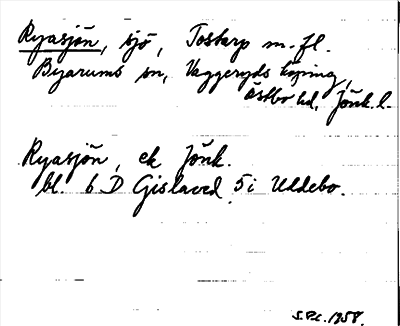 Ryasjön, sjö, Tostarp m. fl.
Byarums sn, Vaggeryds köping,
Östbo hd, Jönk. l.
Ryasjön, ek Jönk.
bl. 6 D Gislaved 5 i Uddebo.
1958.